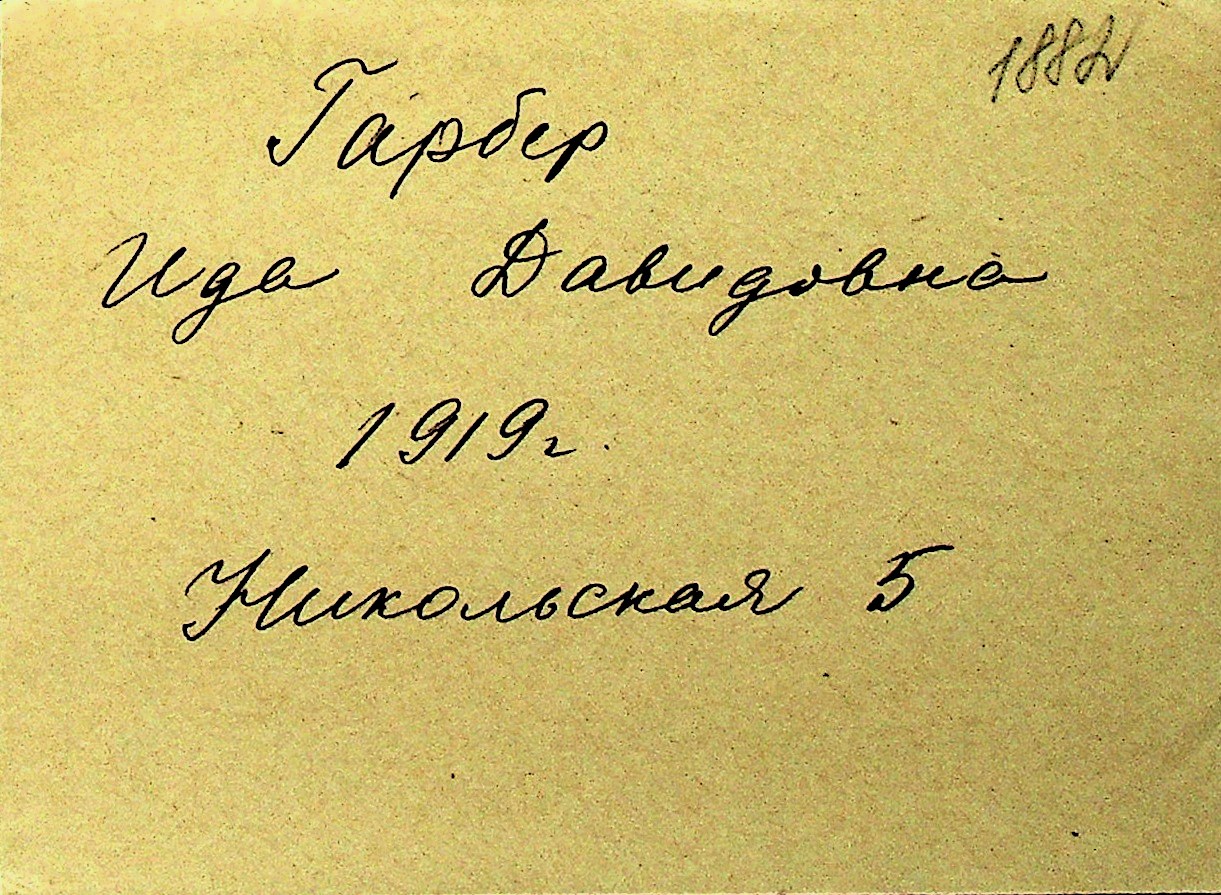 1882
Гарбер
Ида Давидовна
1919г.
Никольская 5